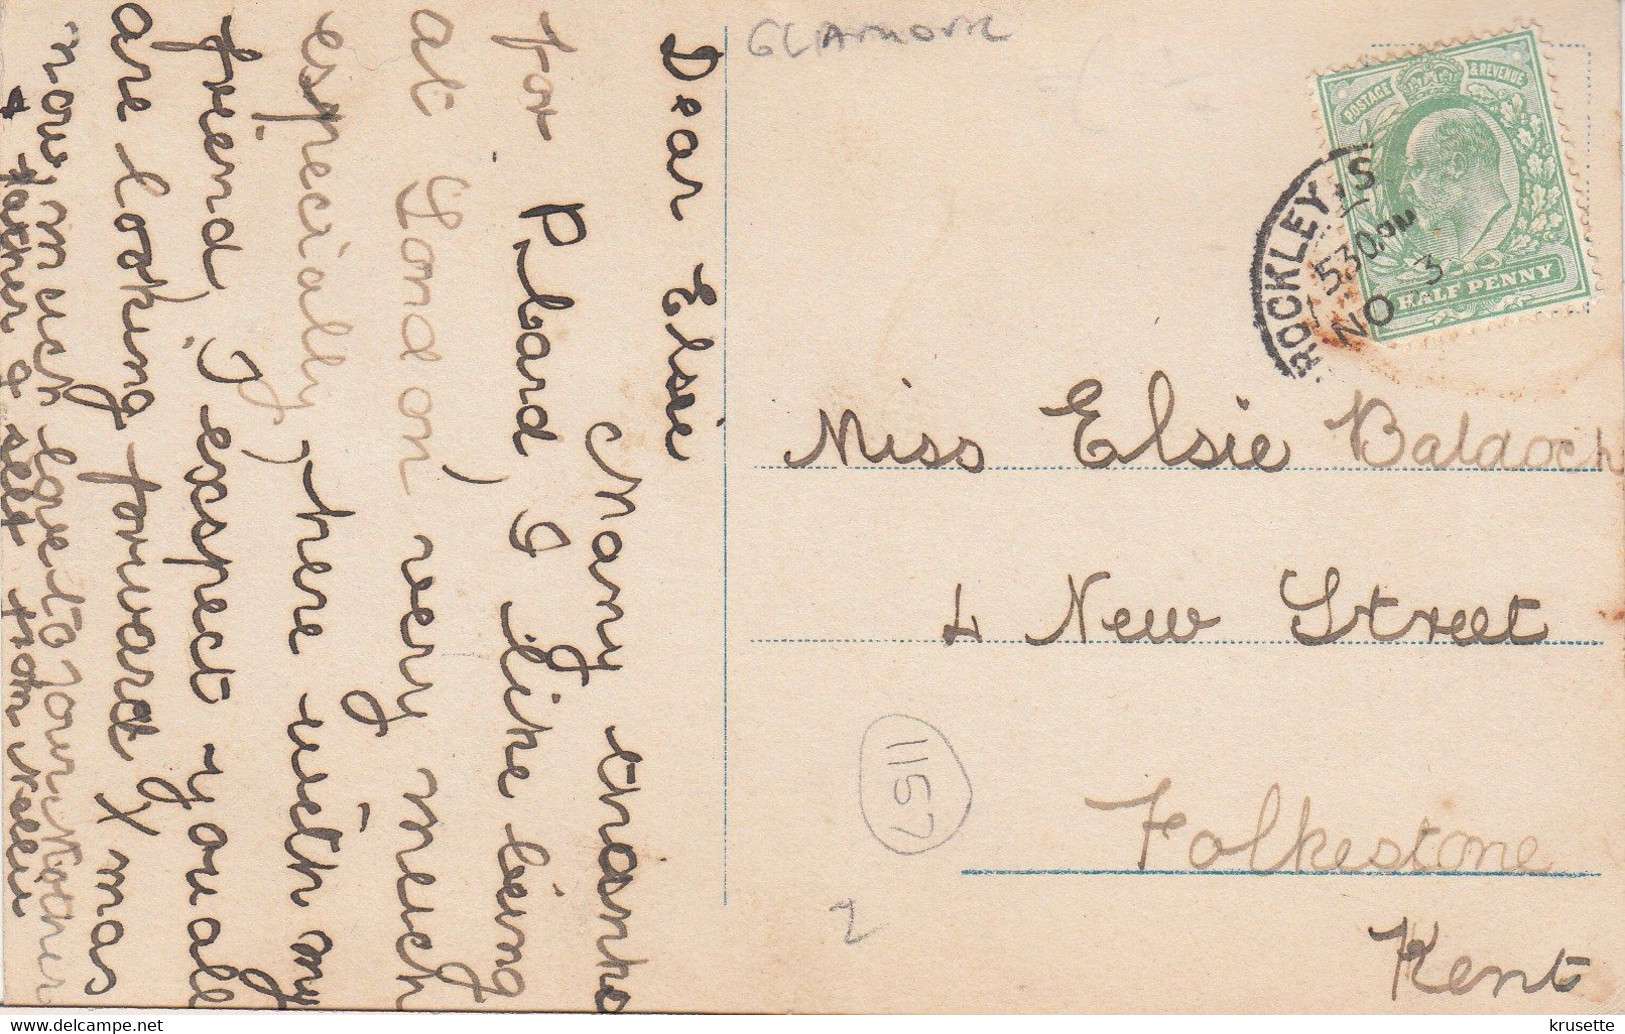 Dear Elsie
Many thanks
for P. Card, I like being
at London very much
especially, here with my
friend, I exspect you all
are looking forward X mas
now, much love to your Mother
& father & self from Nellie
GLAMOUR
POSTAGE & REVENUE
HALF PENNY
BROCKLEY. S
5 30 PM
NO 3
Miss Elsie Baldock
4 New Street
Folkestone
Kent
1157
2
krusette